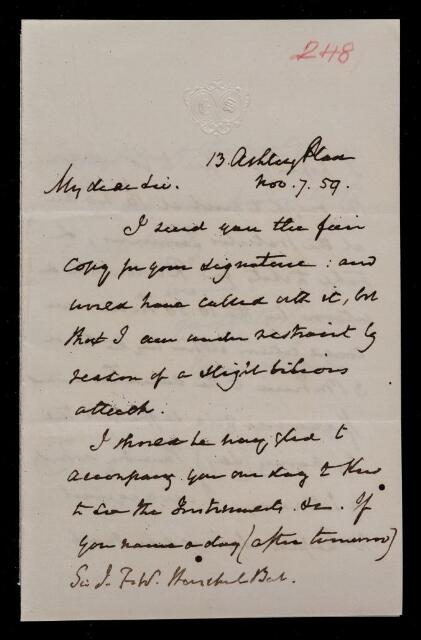 248
13. Ashley Place
Nov. 7. 59.
My dear Sir.
I send you the fair
copy for your signature: and
would have called with it, but
that I am under restraint by
reason of a slight bilious
attack.
I should be very glad to
accompany you one day to Kew
to see the Instruments &c. If
you name a day (after tomorrow)
Sir J. F. W. Herschel Bat.